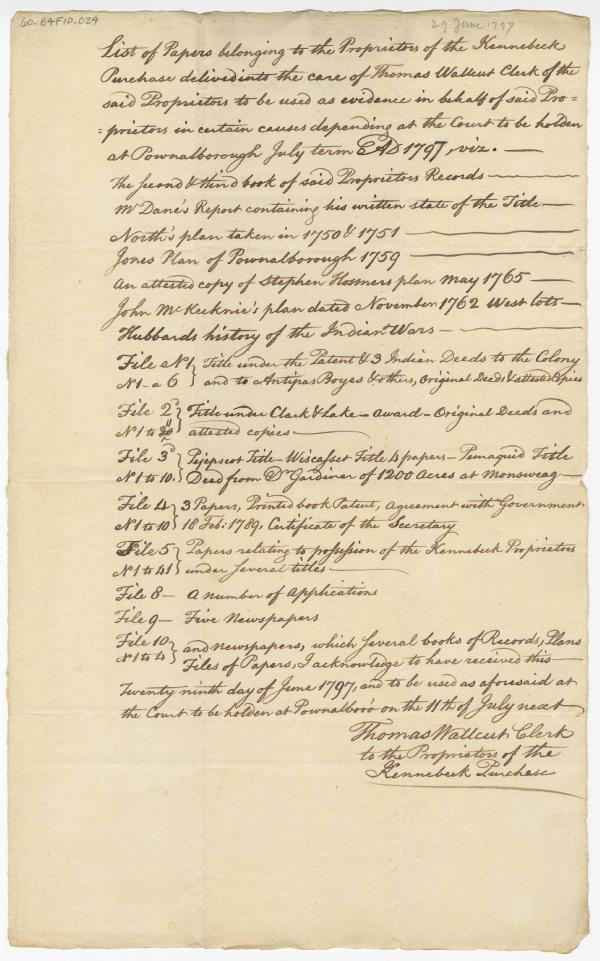 60-B4F10-024
29 June 1797
List of Papers belonging to the Proprietors of the Kennebeck
Purchase delivedinto the care of Thomas Wallcut Clerk of the
said Proprietors to be used as evidence in behalf of said Pro=
=prietors in certain causes depending at the Court to be holden
at Pownalborough July term AD 1797, viz. —
The Second & third book of said Proprietors Records —
Mr Dane's Report containing his written state of the Title —
North's plan taken in 1750 & 1751 —
Jones Plan of Pownalborough 1759 —
An attested copy of Stephen Hosmers plan may 1765 —
John McKecknie's plan dated November 1762 West lots —
Hubbards history of the Indian Wars —
File No 1 } Title under the Patent & 3 Indian Deeds to the Colony
No 1 - a 6 } and to Antipas Boyes & others, Original Deeds & attested Copies
File 2d } Title under Clark & Lake - award - Original Deeds and
No 1 to } attested copies —
File 3d } Pejepscot Title - Wiscasset Title 4 papers - Pemaquid Title
No 1 to 10 } Deed from Dr Gardiner of 1200 Acres at Monsweag —
File 4 } 3 Papers, Printed book Patent, agreement with Government
No 1 to 10 } 18 Feb: 1789, Certificate of the Secretary
File 5 } Papers relating to possession of the Kennebeck Proprietors
No 1 to 41 } under several titles —
File 8 — A number of Applications
File 9 — Five Newspapers
File 10 } and newspapers, which several books of Records, Plans
No 1 to 4 } Files of Papers, I acknowledge to have received this —
Twenty ninth day of June 1797, and to be used as aforesaid at
the Court to be holden at Pownalboro on the 11th of July next
Thomas Wallcut Clerk
to the Proprietors of the
Kennebeck Purchase